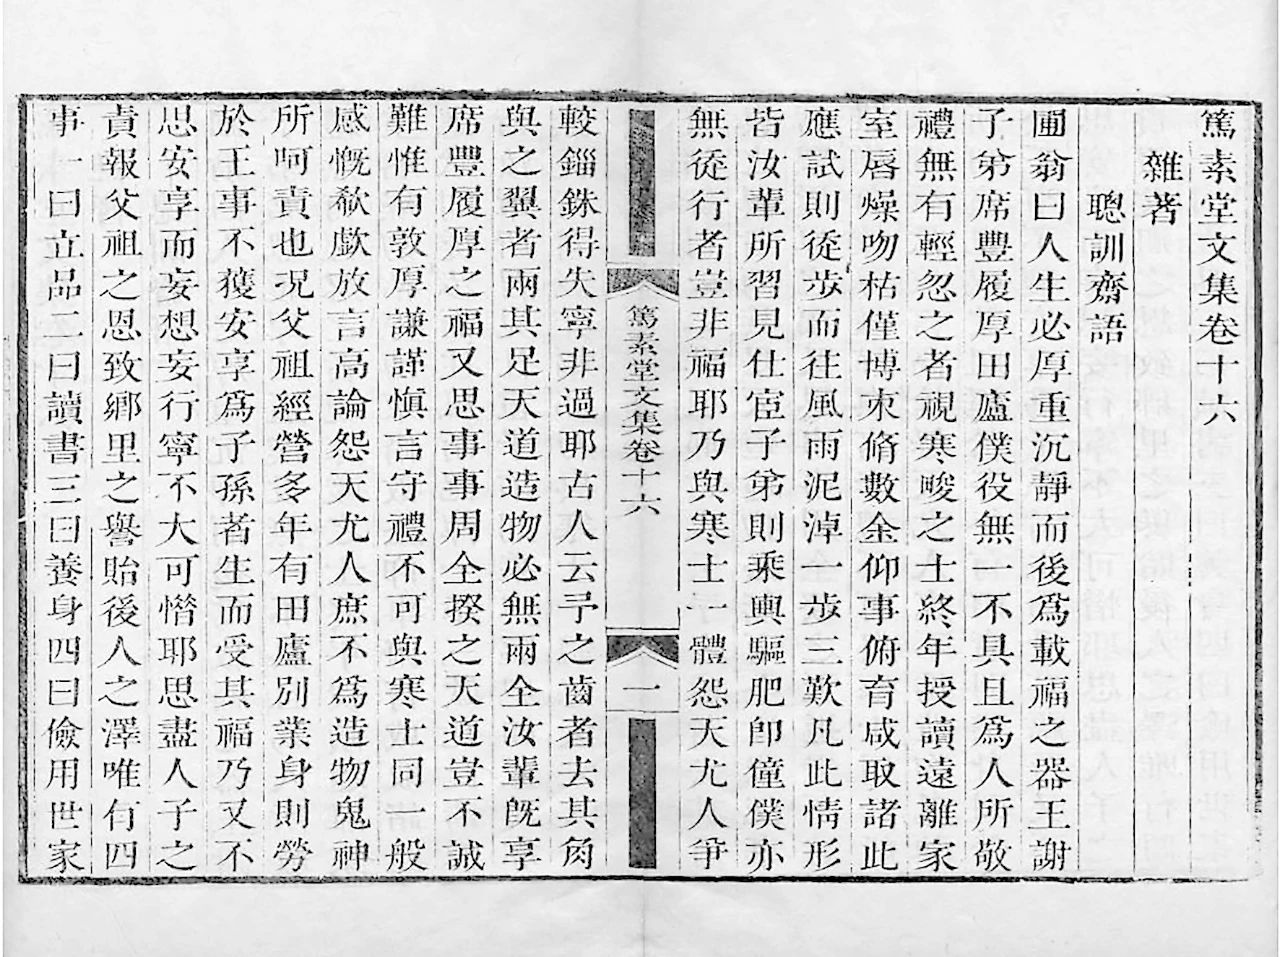 篤素堂文集卷十六
雜著
聰訓齋語
圃翁曰人生必厚重沉靜而後爲載福之器王謝
子弟席豐履厚田廬僕役無一不具且爲人所敬
禮無有輕忽之者視寒畯之士終年授讀遠離家
室唇燥吻枯僅博束脩數金仰事俯育咸取諸此
應試則徒步而往風雨泥淖一步三歎凡此情形
皆汝輩所習見仕宦子弟則乘輿驅肥卽僮僕亦
無徒行者豈非福耶乃與寒士一體怨天尤人爭
篤素堂文集卷十六
一
較錙銖得失寧非過耶古人云予之齒者去其角
與之翼者兩其足天道造物必無兩全汝輩旣享
席豐履厚之福又思事事周全揆之天道豈不誠
難惟有敦厚謙謹愼言守禮不可與寒士同一般
感慨欷歔放言高論怨天尤人庶不爲造物鬼神
所呵責也况父祖經營多年有田廬別業身則勞
於王事不獲安享爲子孫者生而受其福乃又不
思安享而妄想妄行寧不大可惜耶思盡人子之
責報父祖之恩致鄉里之譽貽後人之澤唯有四
事一曰立品二曰讀書三曰養身四曰儉用世家